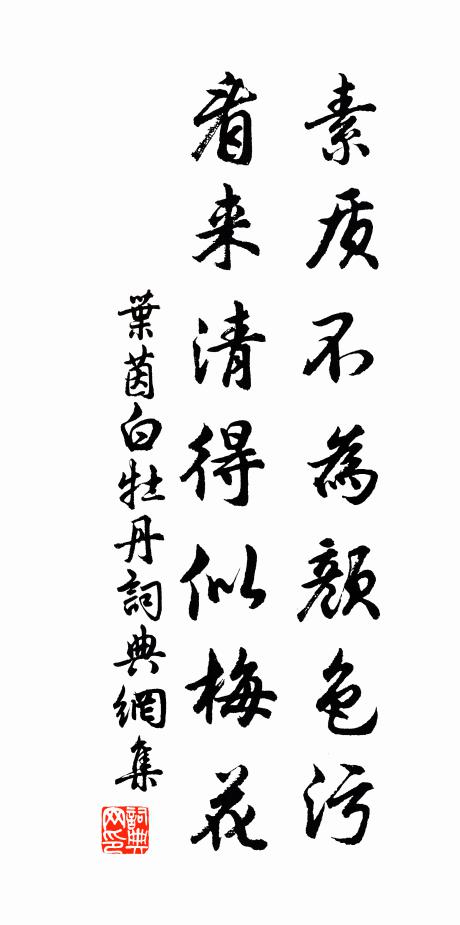 素质不為顏色污
看来清得似梅花
葉茵白牡丹詞典網集
詞典
网印